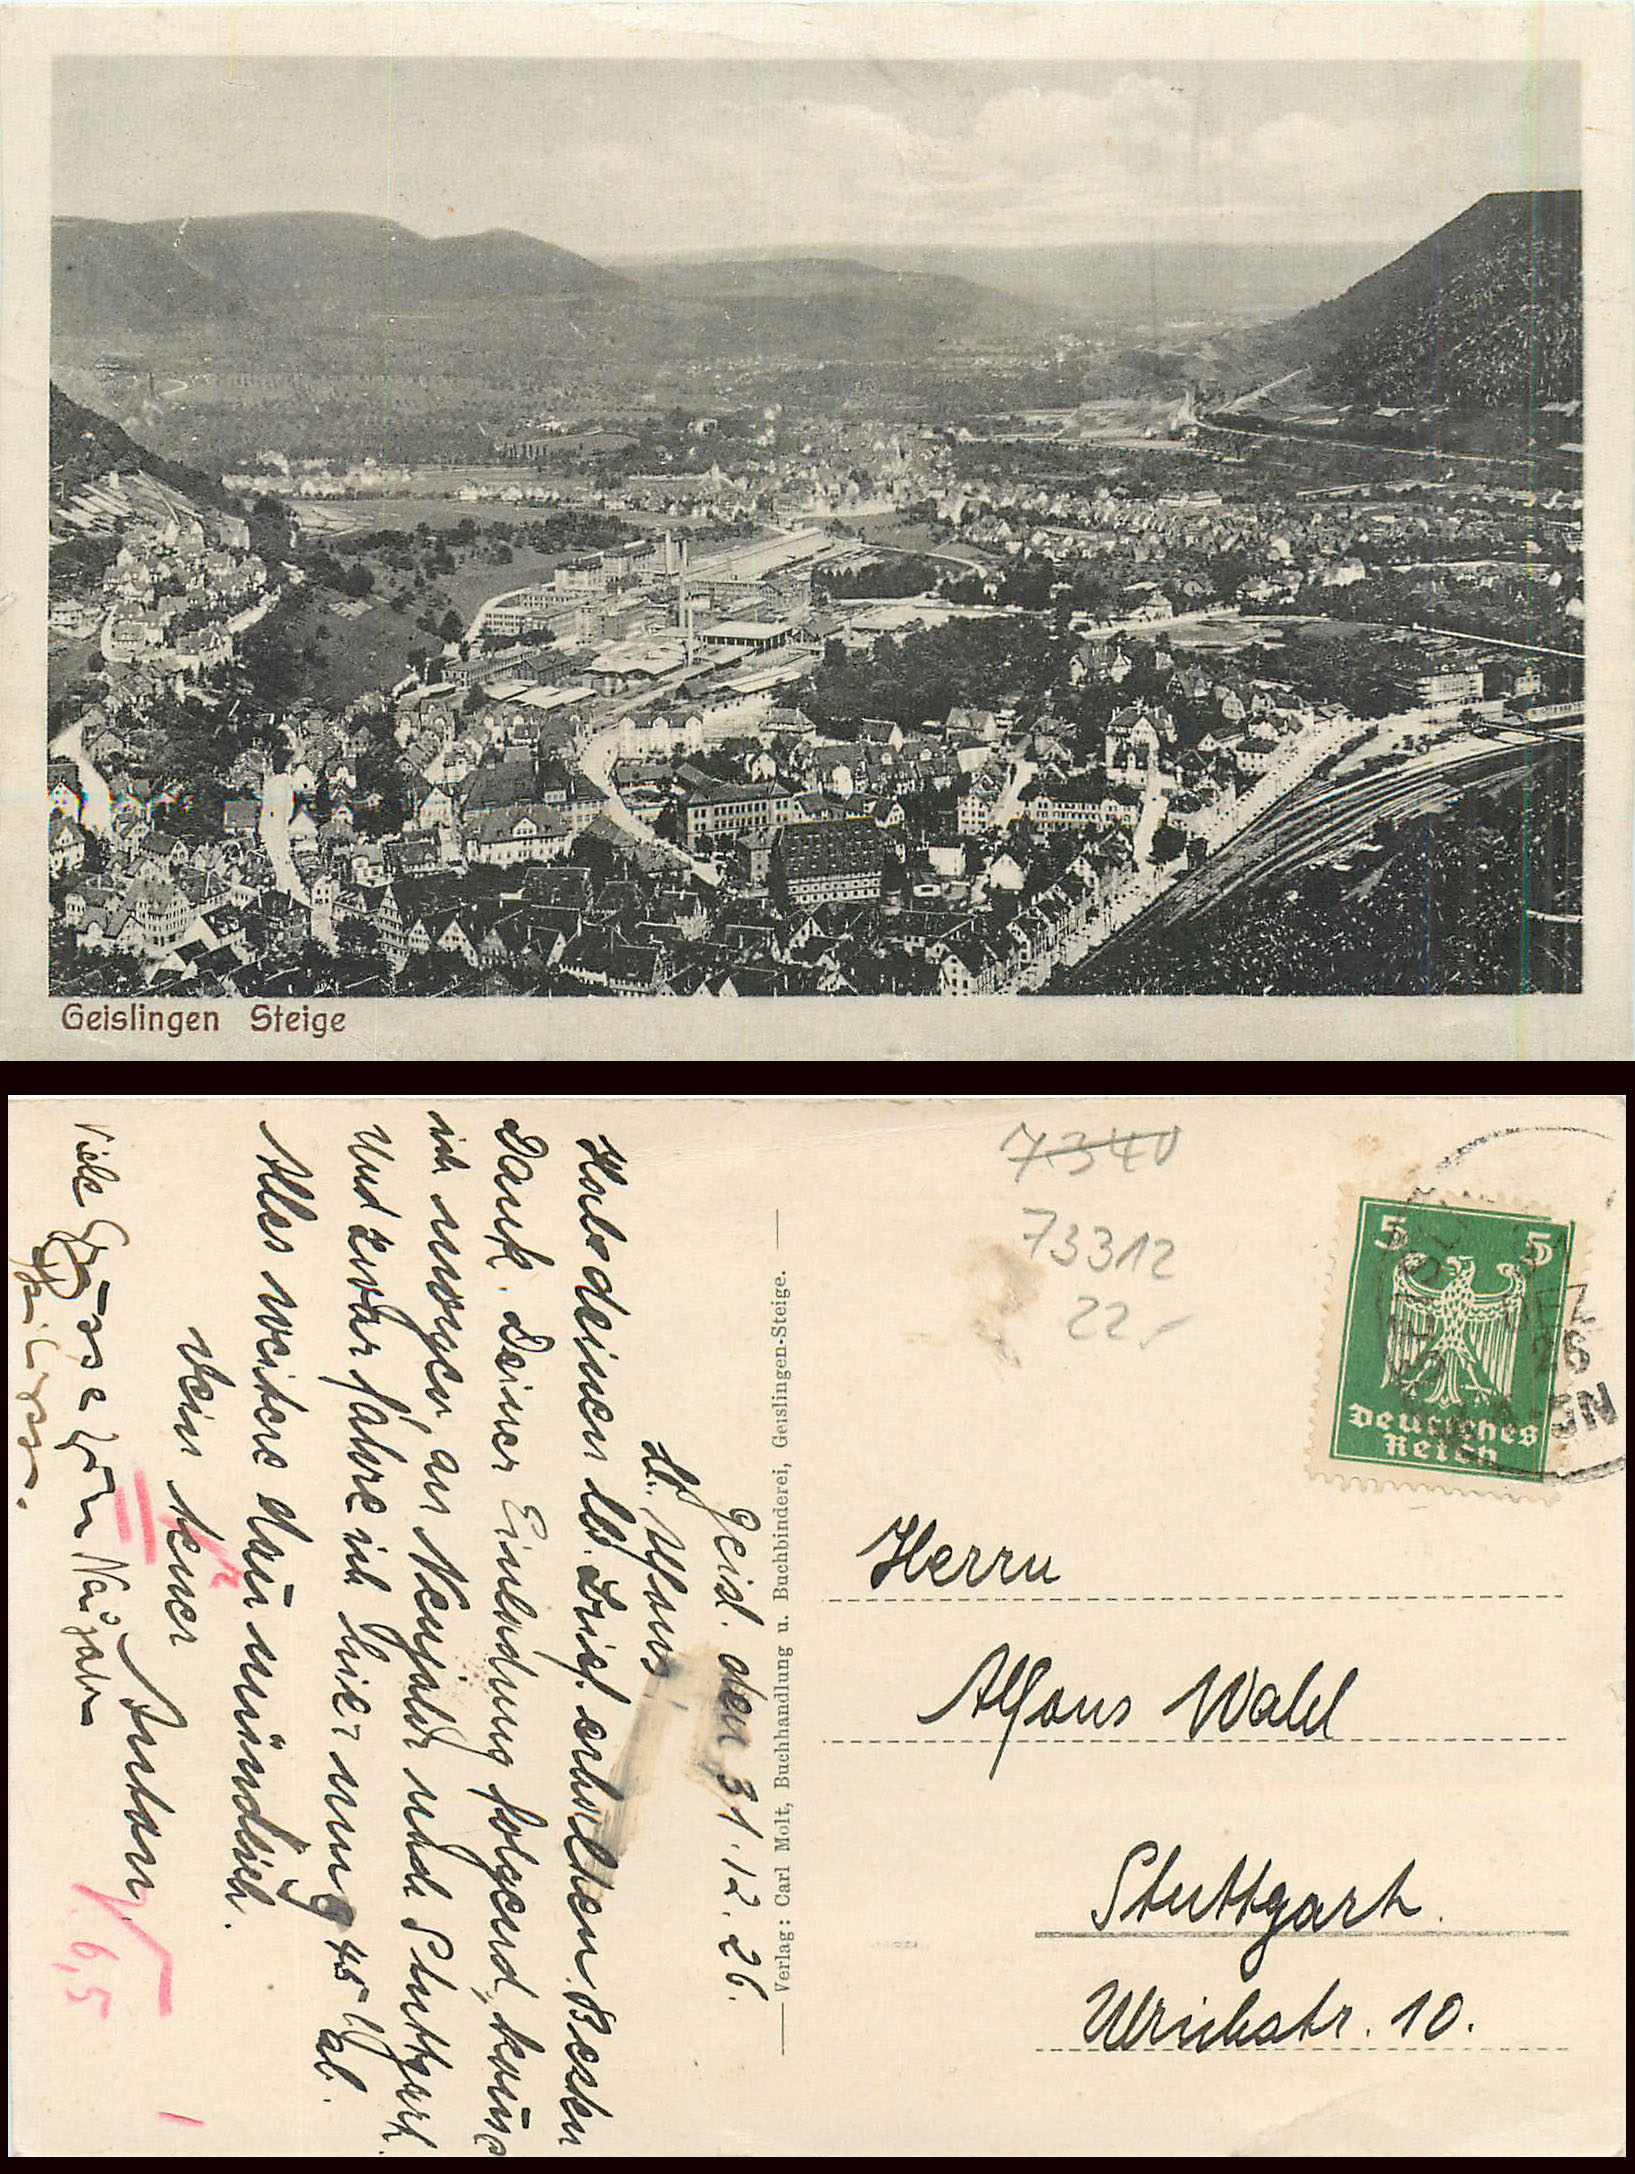 Geislingen Steige
7340
73312
22.-
5 5
Deutsches
Reich
DEZ
26
Herrn
Alfons Wahl
Stuttgart.
Ulrichstr. 10.
Verlag: Carl Molt, Buchhandlung u. Buchbinderei, Geislingen-Steige.
Geisl. den 31.12.26.
Lb. Alfons,
Habe deinen lb. Brief erhalten. Besten
Dank. Deiner Einladung folgend, komme
ich morgen an Neujahr nach Stuttgart.
Und zwar fahre ich hier um 9 45 Uhr ab.
Alles weitere dann mündlich.
Dein treuer
Anton
Viele Grüsse
Neujahr
6,5